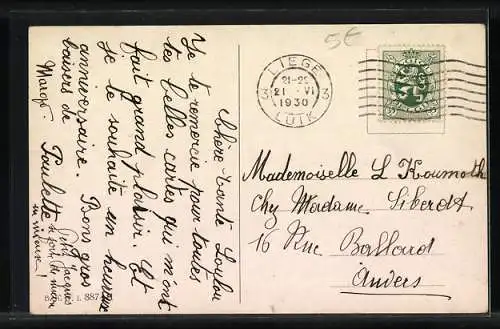 5€
LIEGE
21-22
21 VI
1930
LUIK
3 3
Chère tante Loulou
Je te remercie pour toutes
tes belles cartes qui m'ont
fait grand plaisir. Et
je te souhaite un heureux
anniversaire. Bons gros
baisers de Poulette
Petit Jacques
Mademoiselle L Koumoth
Chez Madame Siberdt
16 Rue Ballaud
Anvers
887